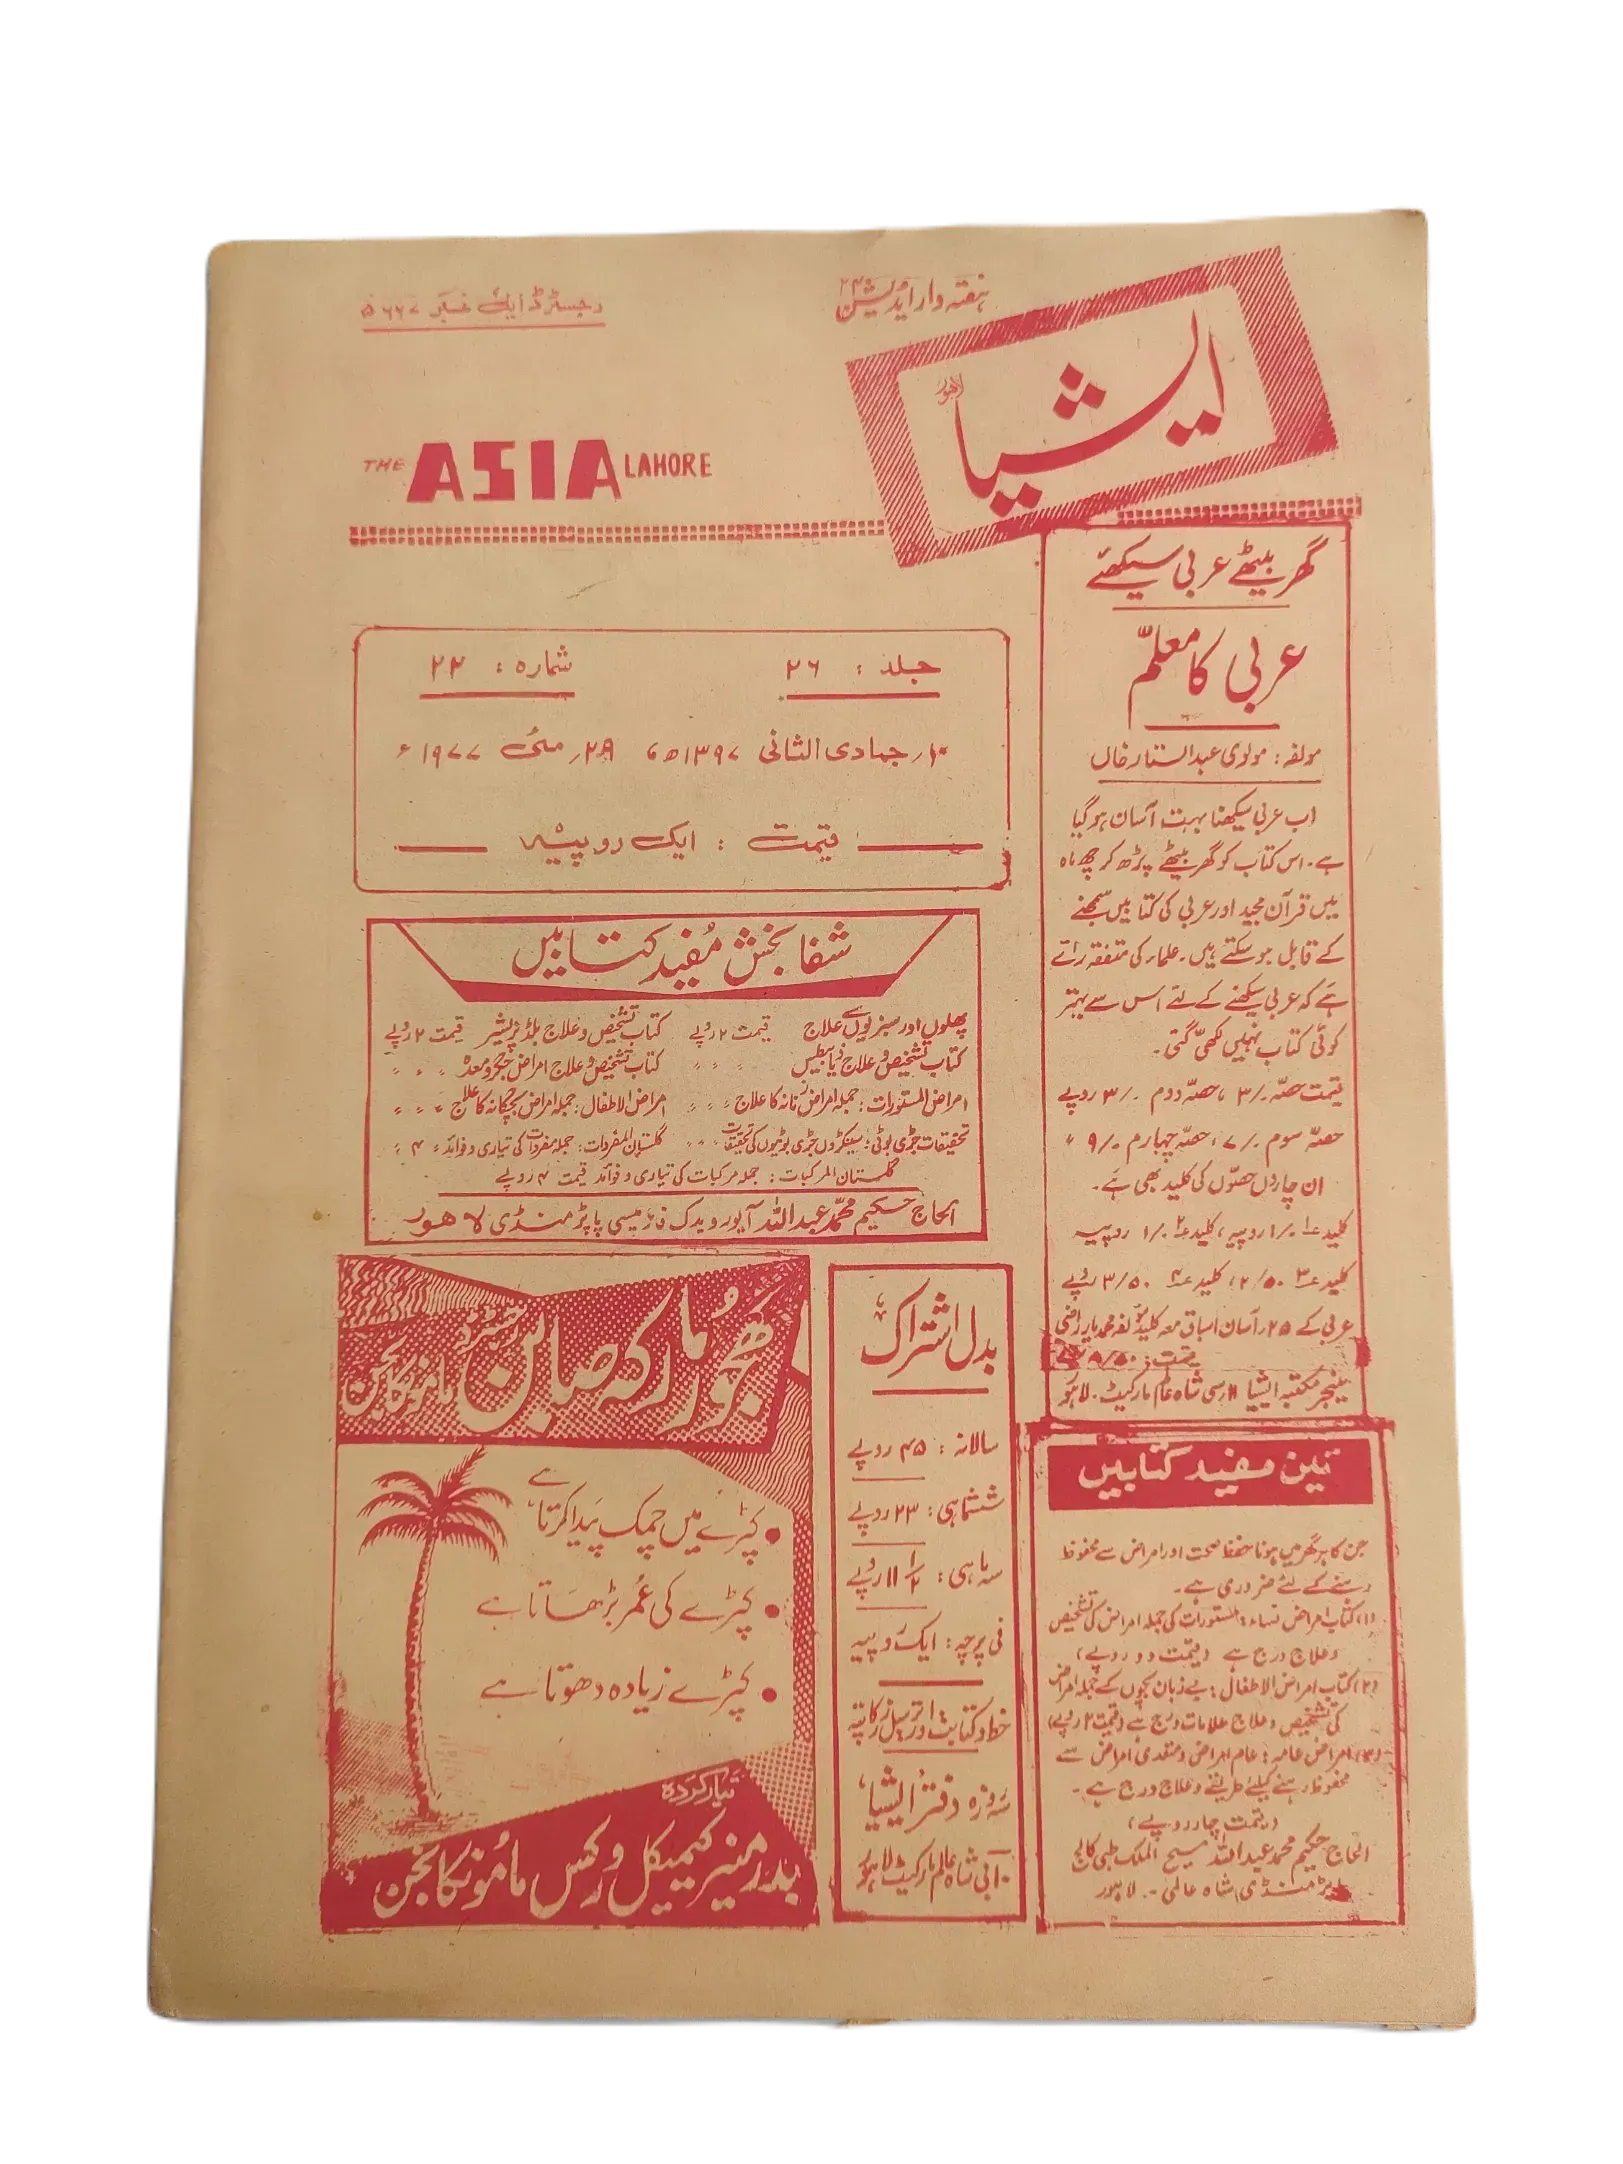 ہفتہ وار ایڈیشن
رجسٹرڈ ایل نمبر ۵۶۶۷
ایشیا
لاہور
THE ASIA LAHORE
جلد : ۲۶ شمارہ : ۲۲
۱۰؍ جمادی الثانی ۱۳۹۷ھ ۲۸؍ مئی ۱۹۷۷ء
قیمت : ایک روپیہ
گھر بیٹھے عربی سیکھئے
عربی کا معلّم
مولفہ : مولوی عبدالستار خاں
اب عربی سیکھنا بہت آسان ہو گیا
ہے۔ اس کتاب کو گھر بیٹھے پڑھ کر چھ ماہ
میں قرآن مجید اور عربی کی کتابیں سمجھنے
کے قابل ہو سکتے ہیں۔ علماء کی متفقہ رائے
ہے کہ عربی سیکھنے کے لئے اس سے بہتر
کوئی کتاب نہیں لکھی گئی۔
قیمت حصّہ ۳/۰، حصّہ دوم ۳/۰ روپے
حصّہ سوم ۷/۰، حصّہ چہارم ۹/۰ "
ان چاروں حصّوں کی کلید بھی ہے۔
کلید ۱ ۱/۰ روپیہ، کلید ۲ ۱/۰ روپیہ
کلید ۳ ۲/۵۰، کلید ۴ ۳/۵۰ روپے
عربی کے ۲۵ آسان اسباق معہ کلید مؤلفہ محمد یار راضی
قیمت :
مینیجر مکتبہ ایشیا ۱۱ سی شاہ عالم مارکیٹ۔ لاہور
شفا بخش مُفید کتابیں
پھلوں اور سبزیوں سے علاج قیمت ۲ روپے کتاب تشخیص و علاج بلڈ پریشر قیمت ۲ روپے
کتاب تشخیص و علاج ذیابیطس " " " کتاب تشخیص و علاج امراض جگر و معدہ " " "
امراض المستورات : جملہ امراض زنانہ کا علاج " " " امراض الاطفال : جملہ امراض بچگانہ کا علاج " " "
تحقیقات جڑی بوٹی : سینکڑوں جڑی بوٹیوں کی تحقیقات " " " گلستان المفردات : جملہ مفردات کی تیاری و فوائد " ۴ "
گلستان المرکبات : جملہ مرکبات کی تیاری و فوائد قیمت ۴ روپے
الحاج حکیم محمّد عبداللہ آیورویدک فارمیسی پاپڑ منڈی لاہور
کھجور مارکہ صابن رجسٹرڈ ماموںکانجن
کپڑے میں چمک پیدا کرتا ہے
کپڑے کی عُمر بڑھاتا ہے
کپڑے زیادہ دھوتا ہے
تیار کردہ
بدر منیر کیمیکل ورکس ماموںکانجن
بدل اشتراک
سالانہ : ۴۵ روپے
ششماہی : ۲۳ روپے
سہ ماہی : ۱۱ ۱/۲ روپے
فی پرچہ : ایک روپیہ
خط و کتابت اور ترسیل زر کا پتہ
سہ روزہ دفتر 'ایشیا'
۱۰۔ اے شاہ عالم مارکیٹ لاہور
تین مفید کتابیں
جن کا ہر گھر میں ہونا حفظ صحت اور امراض سے محفوظ
رہنے کے لئے ضروری ہے۔
(۱) کتاب امراض نساء : مستورات کی جملہ امراض کی تشخیص
و علاج درج ہے (قیمت دو روپے)
(۲) کتاب امراض الاطفال : بے زبان بچوں کے جملہ امراض
کی تشخیص و علاج علامات درج ہے (قیمت ۲ روپے)
(۳) امراض عامہ : عام امراض و متعدی امراض سے
محفوظ رہنے کیلئے طریقے و علاج درج ہے۔
(قیمت چار روپے)
الحاج حکیم محمد عبداللہ مسیح الملک طبی کالج
پاپڑ منڈی شاہ عالمی۔ لاہور